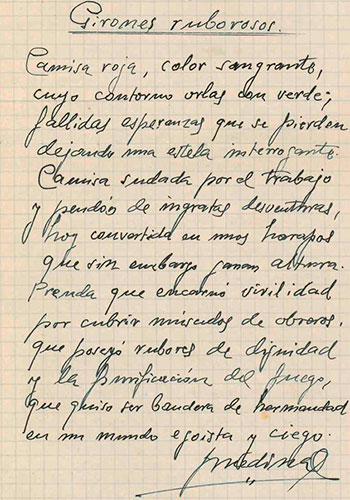 Girones ruborosos.
Camisa roja, color sangrante,
cuyo contorno orlas con verde;
fallidas esperanzas que se pierden
dejando una estela interrogante.
Camisa sudada por el trabajo
y pendón de ingratas desventuras,
hoy convertida en unos harapos
que sin embargo ganan altura.
Prenda que encarnó virilidad
por cubrir músculos de obreros,
que poseyó rubores de dignidad
y la purificación del fuego,
que quiso ser bandera de hermandad
en un mundo egoista y ciego.
Medina